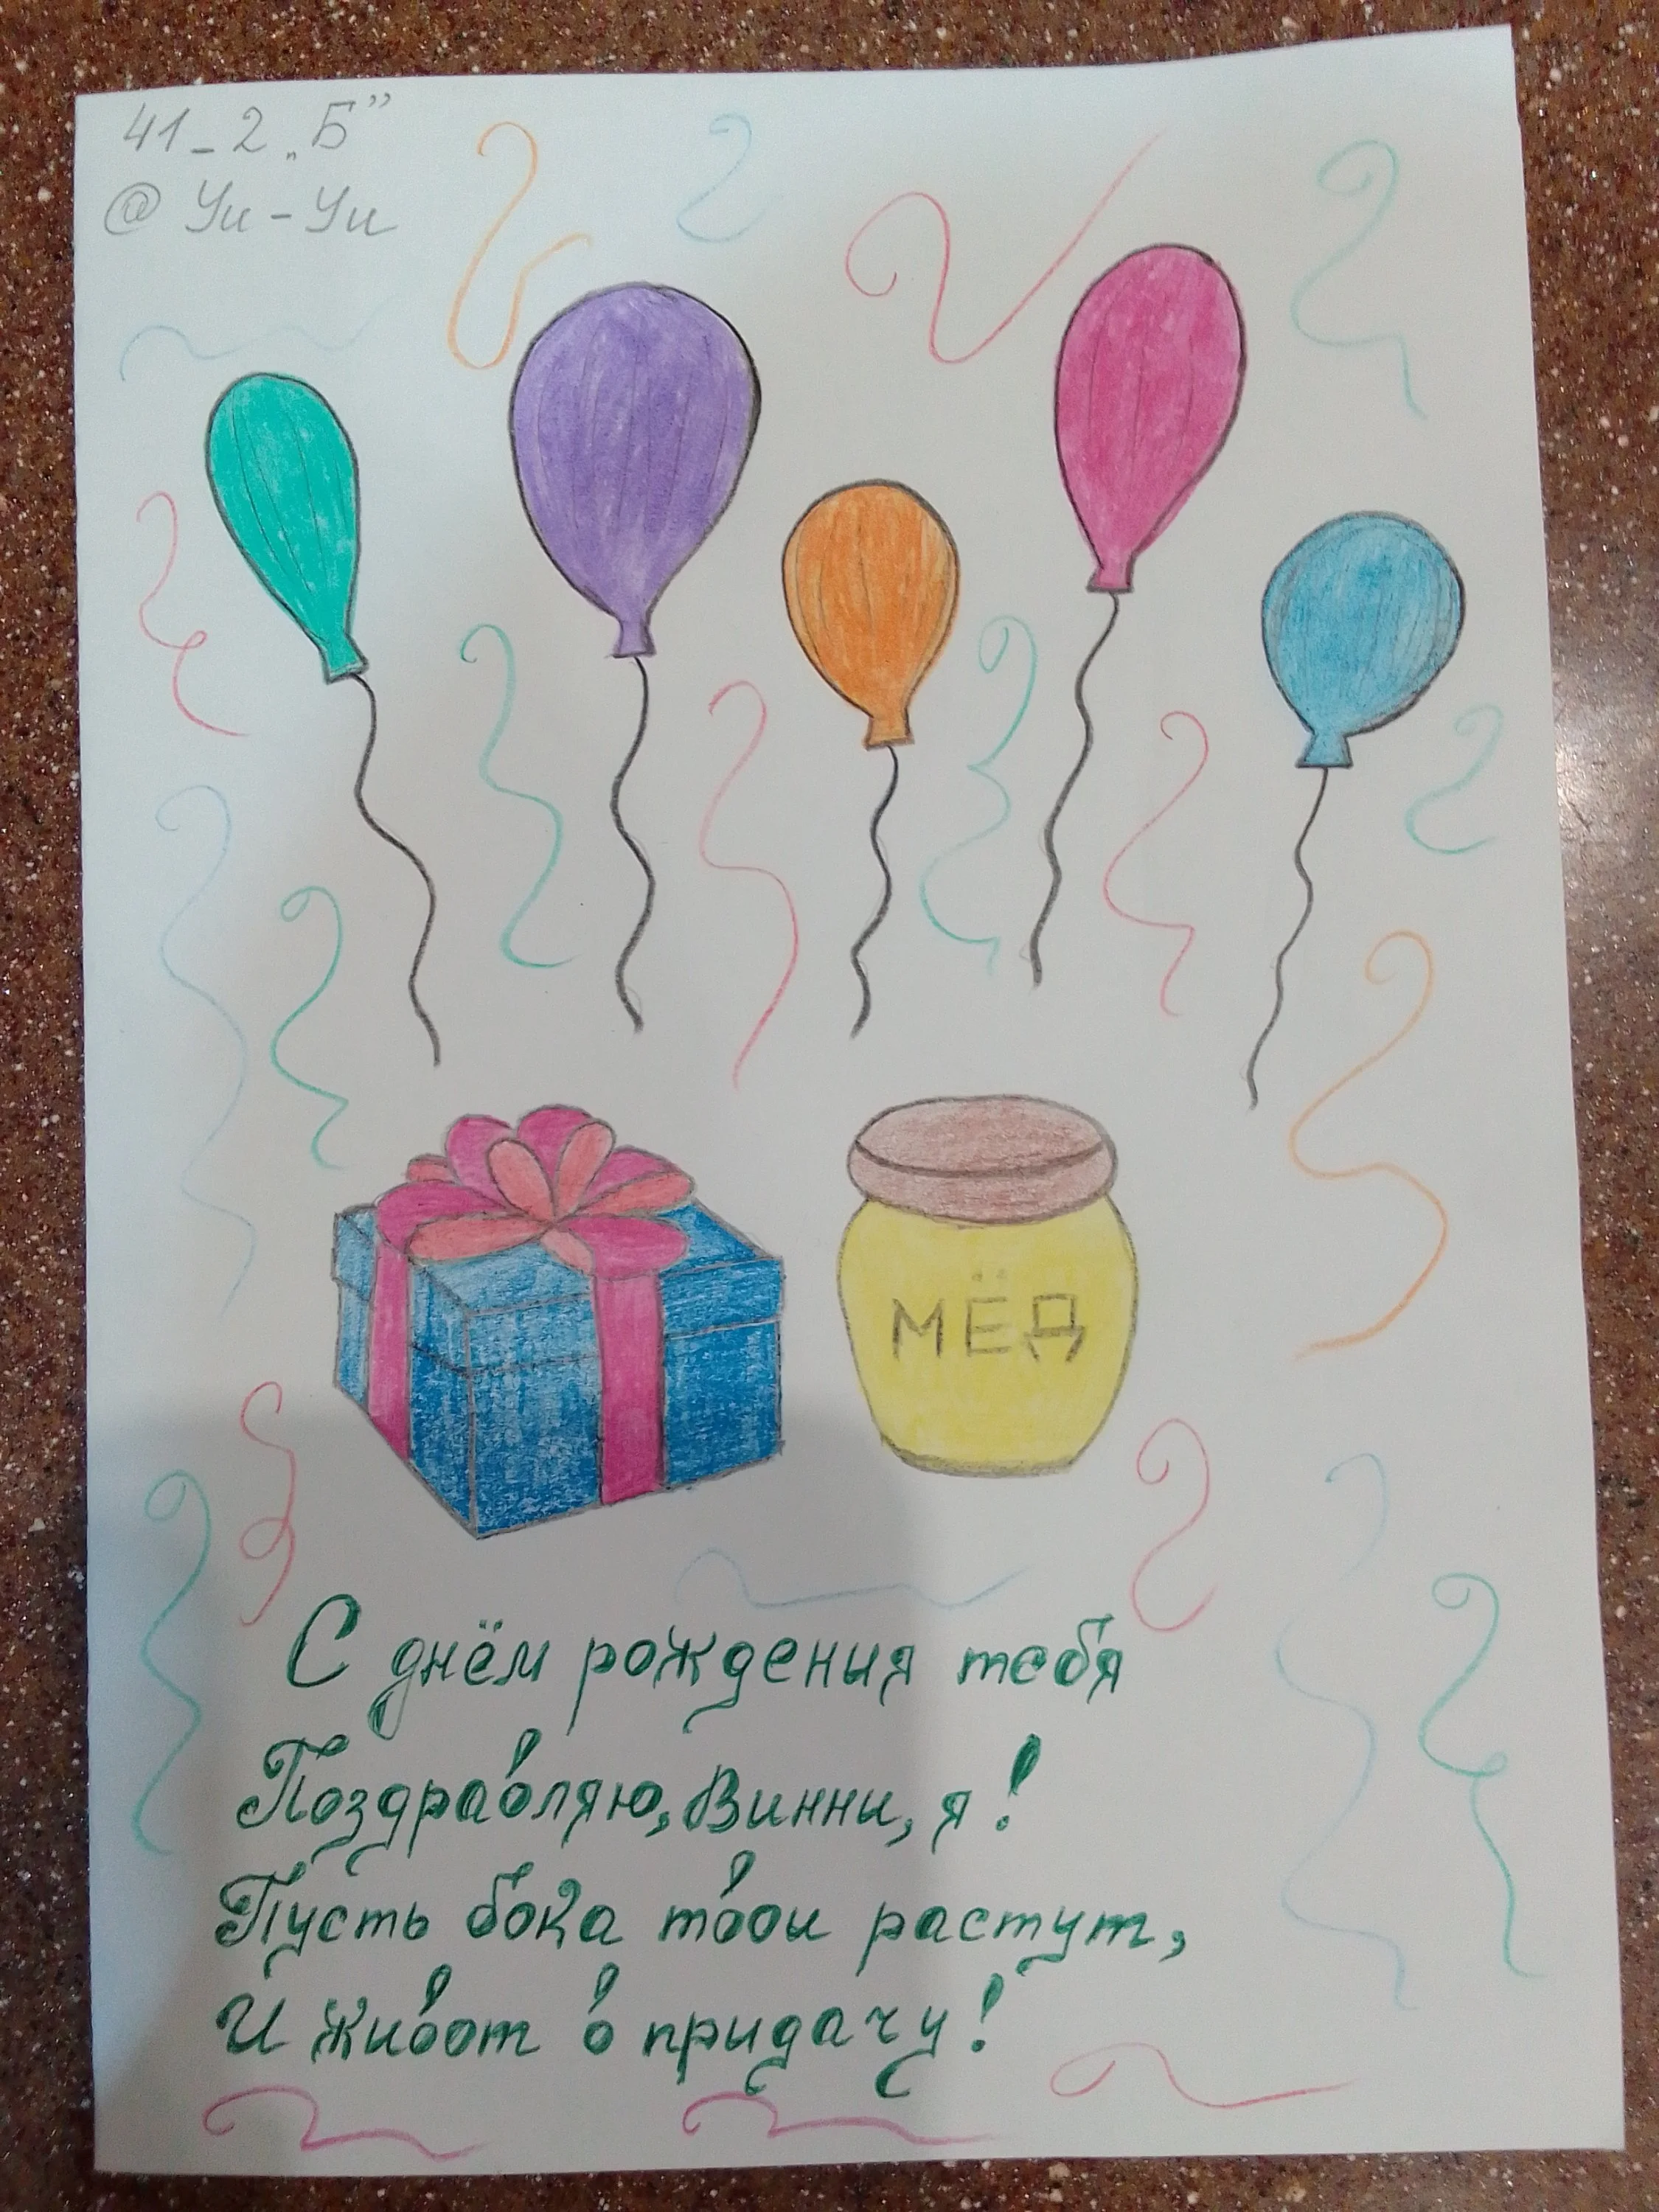 41_2 „Б”
@ Уи-Уи
МЁД
С днём рождения тебя
Поздравляю, Винни, я!
Пусть бока твои растут,
И живот в придачу!